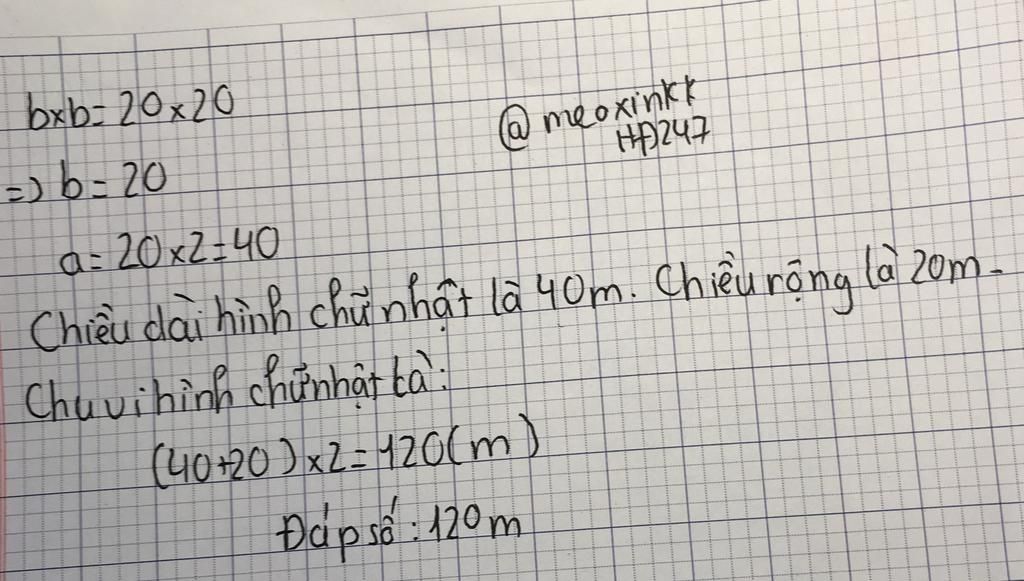 b×b=20×20
@meoxinkk
HĐ247
=> b=20
a=20×2=40
Chiều dài hình chữ nhật là 40m. Chiều rộng là 20m.
Chu vi hình chữ nhật là:
(40+20)×2=120(m)
Đáp số: 120m